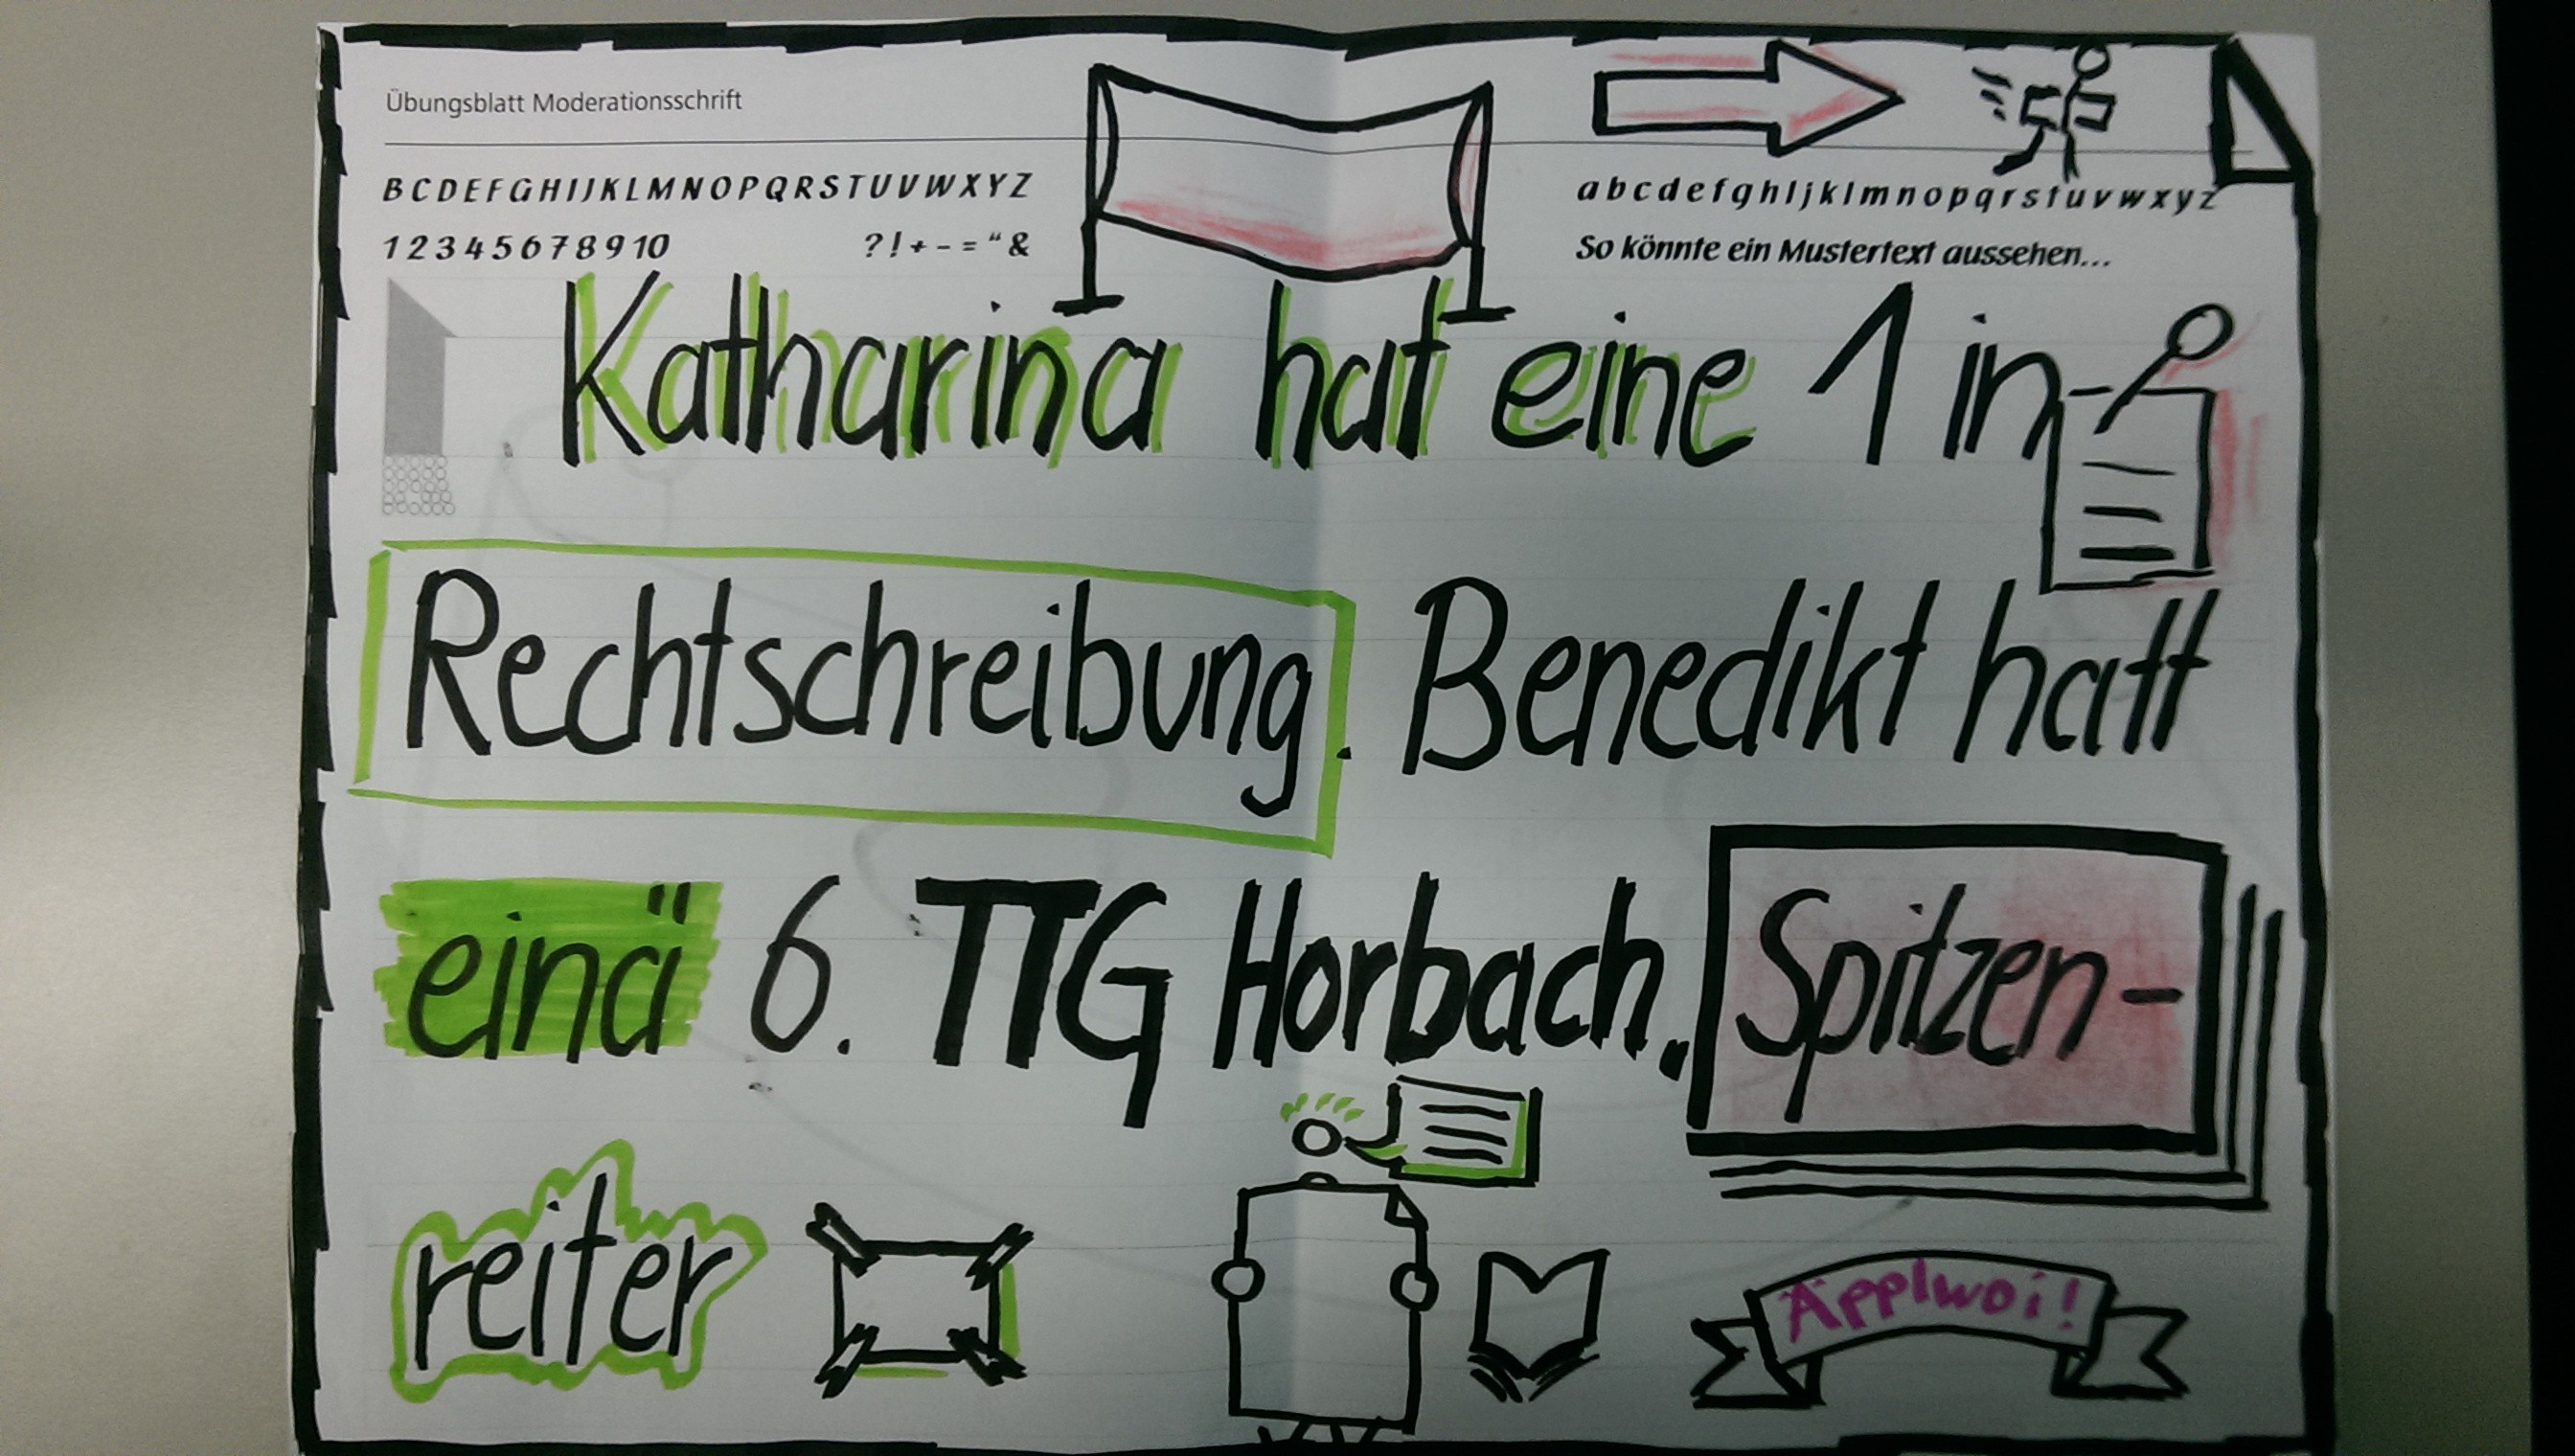 Übungsblatt Moderationsschrift
B C D E F G H I J K L M N O P Q R S T U V W X Y Z
a b c d e f g h I j k l m n o p q r s t u v w x y z
1 2 3 4 5 6 7 8 9 10
? ! + - = “ &
So könnte ein Mustertext aussehen...
Katharina hat eine 1 in
Rechtschreibung. Benedikt hatt
einä 6. TTG Horbach. Spitzen-
reiter
Äpplwoi!